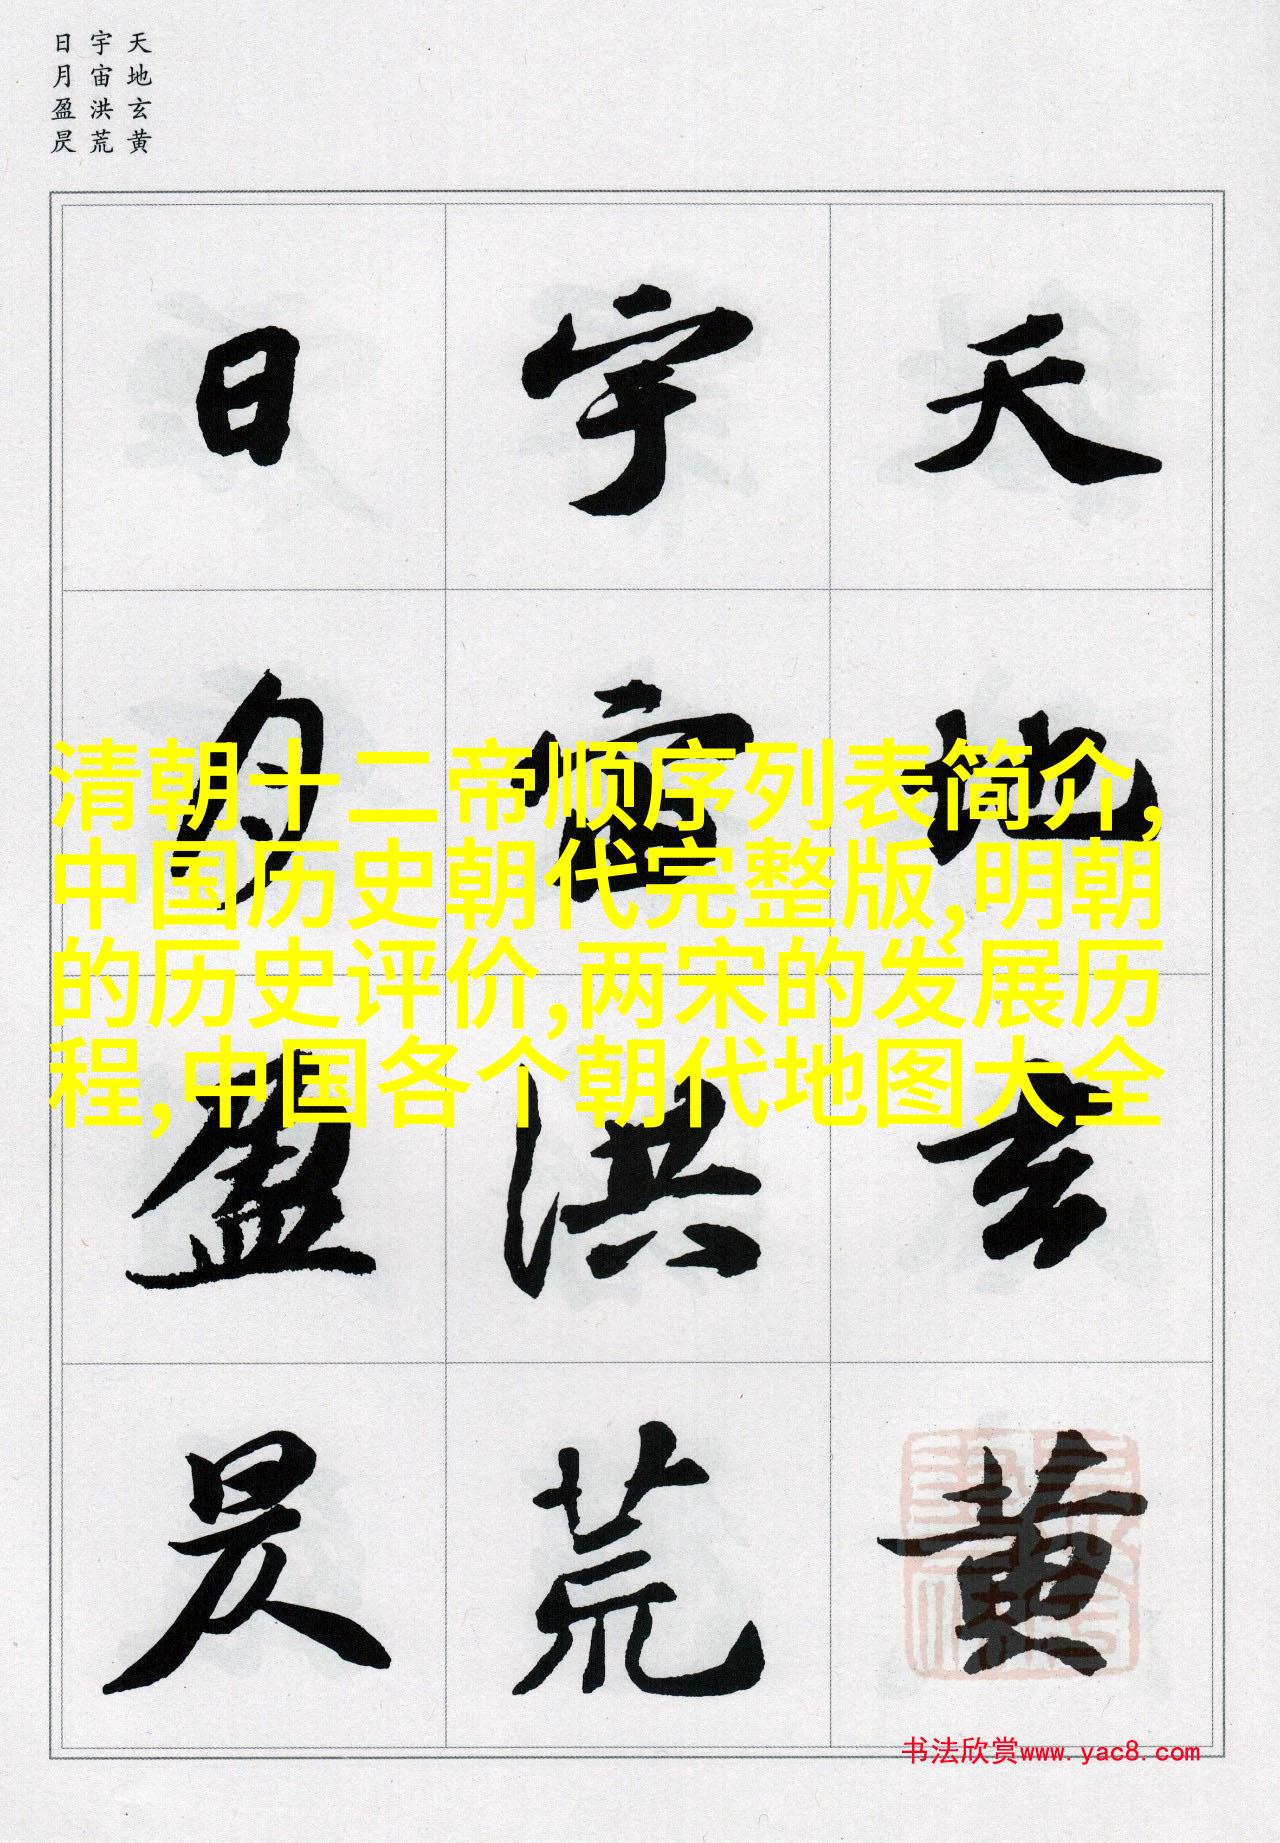 天地玄黄
宇宙洪荒
日月盈昃
天地玄黄
宇宙洪荒
日月盈昃
清朝十二帝顺序列表简介,
中国历史朝代完整版,明朝
的历史评价,两宋的发展历
程,中国各个朝代地图大全
书法欣赏www.yac8.com